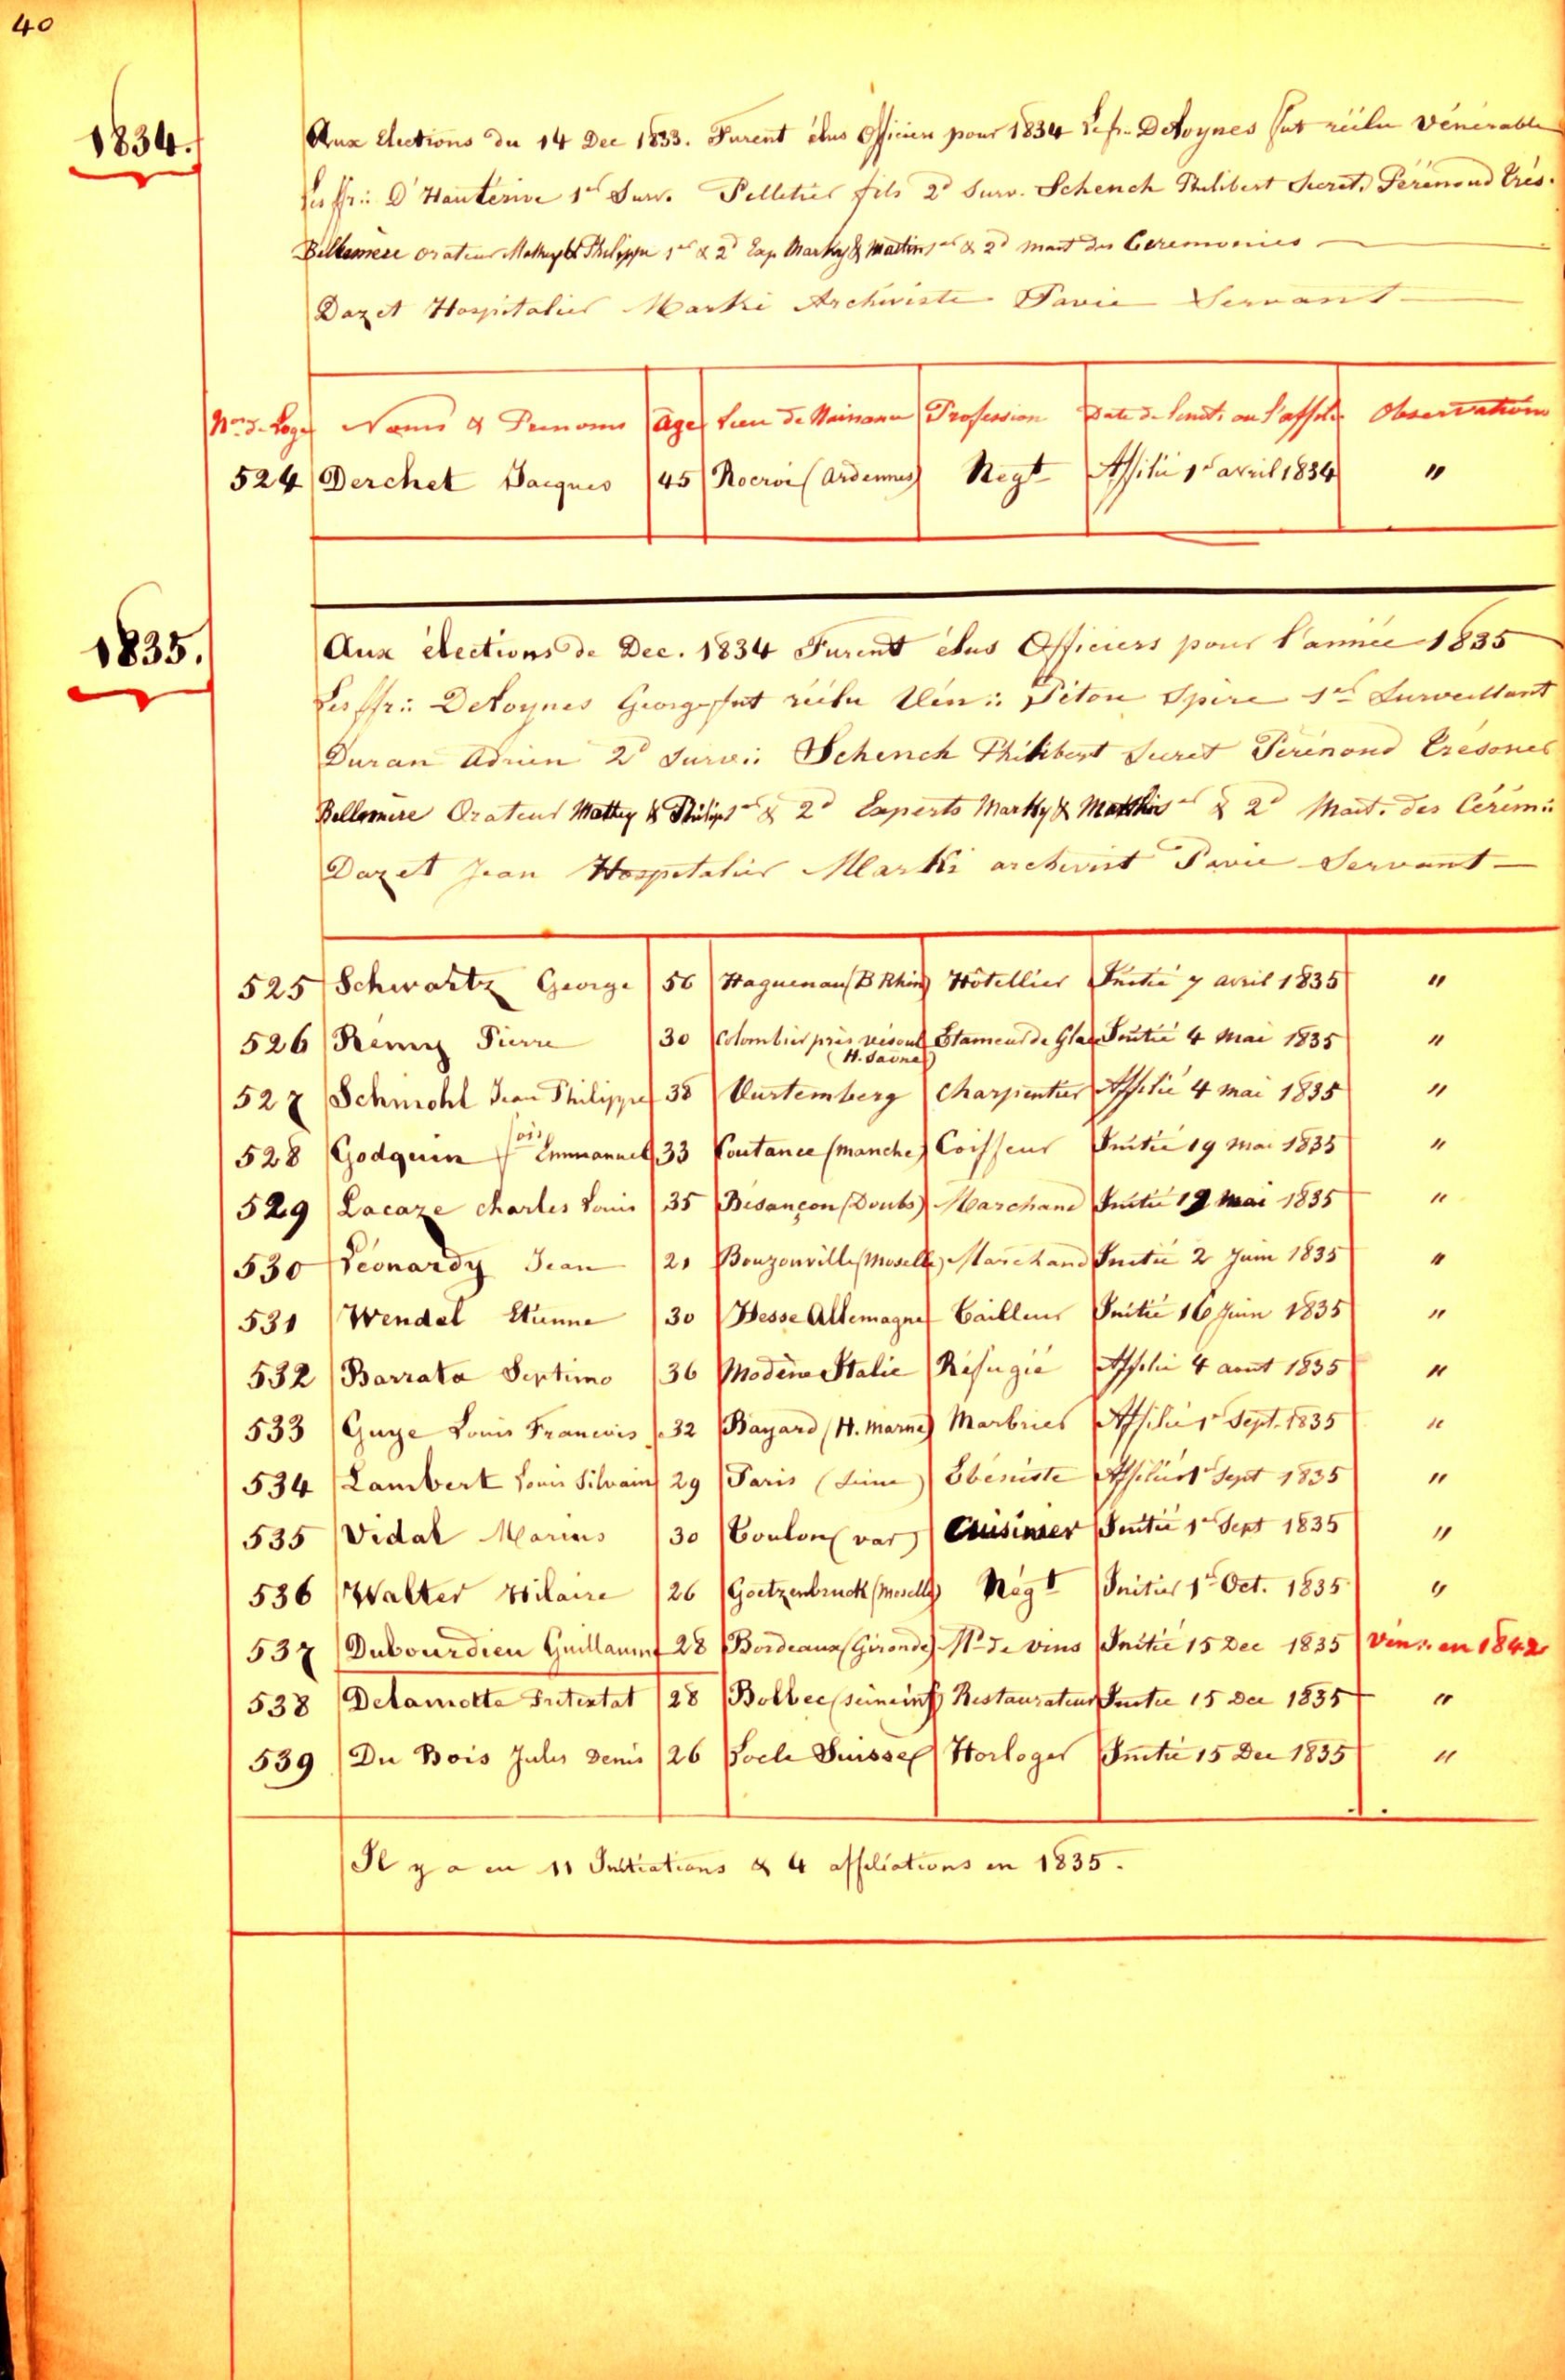 40
1834.
Aux Elections du 14 Dec 1833. Furent élus Officiers pour 1834 Le fr. DeLoynes fut réélu Vénérable
Les ffr:: D'Hauterive 1er Surv. Pelletier fils 2d Surv. Schenck Philibert Secret. Perénond Trés.
Bellemère Orateur Mathey & Philippe 1er & 2d Exp. Marky & Martin 1er & 2d Mait des Ceremonies
Dazet Hospitalier Marki Archiviste Pavie Servant
No d. Loge Noms & Prenoms Age Lieu de Naissance Profession Date de l'init. ou l'affil. Observations
524 Derchet Jacques 45 Rocroi (Ardennes) Negt Affilié 1er avril 1834 "
1835.
Aux élections de Dec. 1834 Furent élus Officiers pour l'année 1835
Les ffr:: DeLoynes George fut réélu Vén:: Piton Spire 1er Surveillant
Duran Adrien 2d Surv:: Schenck Philibert Secret Perénond Trésorier
Bellemère Orateur Mathey & Philippe 1er & 2d Experts Marky & Matthieu 1er & 2d Mait. des Cérém::
Dazet Jean Hospitalier Marki archivist Pavie Servant
525 Schwartz George 56 Haguenau (B Rhin) Hôtellier Initié 7 avril 1835 "
526 Remy Pierre 30 Colombier près vesoul Etameur de Glac Initié 4 Mai 1835 "
(H. Saone)
527 Schmohl Jean Philippe 38 Vurtemberg Charpentier Affilié 4 mai 1835 "
528 Godquin fois Emmanuel 33 Coutance (manche) Coiffeur Initié 19 Mai 1835 "
529 Lacaze Charles Louis 35 Besançon (Doubs) Marchand Initié 19 Mai 1835 "
530 Léonardy Jean 21 Bouzonville (Moselle) Marchand Initié 2 Juin 1835 "
531 Wendel Etienne 30 Hesse Allemagne Tailleur Initié 16 Juin 1835 "
532 Barrata Septimo 36 Modène Italie Réfugié Affilié 4 aout 1835 "
533 Guye Louis Francois 32 Bayard (H. Marne) Marbrier Affilié 1er Sept. 1835 "
534 Lambert Louis Silvain 29 Paris (Seine) Ebéniste Affilié 1er Sept 1835 "
535 Vidal Marius 30 Toulon (var) Cuisinier Initié 1er Sept 1835 "
536 Walter Hilaire 26 Goetzenbruck (Moselle) Négt Initié 1er Oct. 1835 "
537 Dubourdieu Guillaume 28 Bordeaux (Gironde) Md de vins Initié 15 Dec 1835 Vén:: en 1842
538 Delamotte Pretextat 28 Bolbec (seine inf) Restaurateur Initié 15 Dec 1835 "
539 Du Bois Jules Denis 26 Locle Suisse Horloger Initié 15 Dec 1835 "
Il y a eu 11 Initiations & 4 affiliations en 1835.